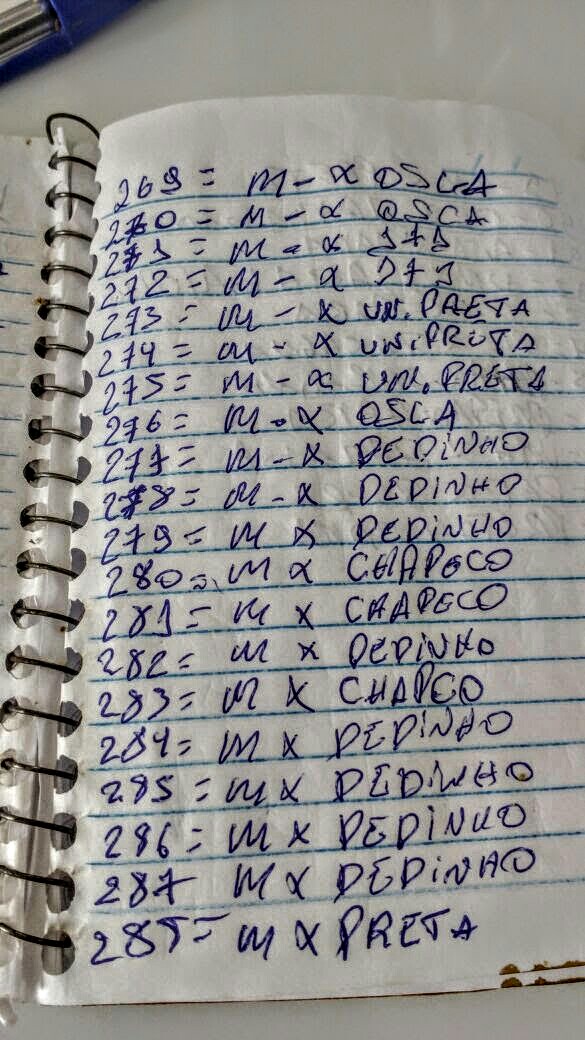 269 = M - X OSCA
270 = M - X OSCA
271 = M - X 171
272 = M - X 171
273 = M - X UN. PRETA
274 = M - X UN. PRETA
275 = M - X UN. PRETA
276 = M - X OSCA
277 = M - X DEDINHO
278 = M - X DEDINHO
279 = M X DEDINHO
280 = M X CHAPECO
281 = M X CHAPECO
282 = M X DEDINHO
283 = M X CHAPEO
284 = M X DEDINHO
285 = M X DEDINHO
286 = M X DEDINHO
287 M X DEDINHO
= M X PRETA